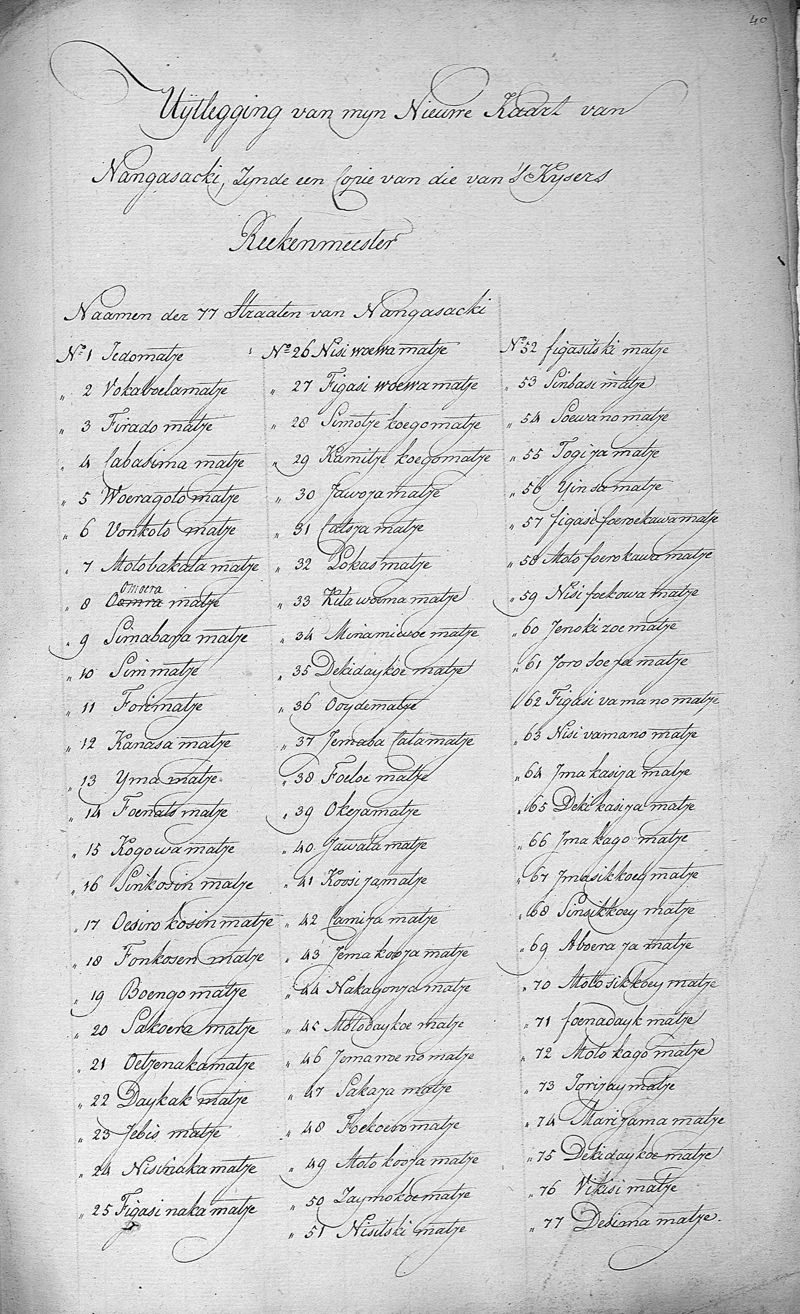 40
Uijtlegging van mijn Nieuwe Kaart van
Nangasacki, Zijnde een Copie van die van 's Kijsers
Reekenmeester
Naamen der 77 Straaten van Nangasacki
No. 1 Jedomatje
" 2 Vokaboelamatje
" 3 Firado matje
" 4 Cabasima matje
" 5 Woeragoto matje
" 6 Vonkoto matje
" 7 Motobakata matje
" 8 Oomra Omoera matje
" 9 Simabara matje
" 10 Sim matje
" 11 Forimatje
" 12 Kanasa matje
" 13 Yma matje
" 14 Foenats matje
" 15 Kogowa matje
" 16 Sinkosin matje
" 17 Oesiro kosin matje
" 18 Fonkosen matje
" 19 Boengo matje
" 20 Sakoera matje
" 21 Oetjenakamatje
" 22 Daykak matje
" 23 Jebis matje
" 24 Nisinaka matje
" 25 Figasi naka matje
No. 26 Nisi woewa matje
" 27 Figasi woewa matje
" 28 Simotje koegomatje
" 29 Kamitje koegomatje
" 30 Jawoja matje
" 31 Catsja matje
" 32 Dokas matje
" 33 Kita woema matje
" 34 Minamiwoe matje
" 35 Dekidaykoe matje
" 36 Ooydematje
" 37 Jemaba Catamatje
" 38 Foeloe matje
" 39 Okejamatje
" 40 Jawata matje
" 41 Koosi jamatje
" 42 Camija matje
" 43 Jema kooja matje
" 44 Nakagonja matje
" 45 Motodaykoe matje
" 46 Jemanoe no matje
" 47 Sakaja matje
" 48 Foekoebo matje
" 49 Moto kooja matje
" 50 Zaymokoematje
" 51 Nisitski matje
No. 52 figasitski matje
" 53 Sinbasi matje
" 54 Soewano matje
" 55 Togija matje
" 56 Yinsa matje
" 57 figasi foeroekawa matje
" 58 Moto foerokawa matje
" 59 Nisi foekowa matje
" 60 Jenoki zoe matje
" 61 Joro soeja matje
" 62 Figasi vamano matje
" 63 Nisi vamano matje
" 64 Jma kasija matje
" 65 Deki kasija matje
" 66 Jma kago matje
" 67 Jmasikkoey matje
" 68 Sinsikkoey matje
" 69 Aboera ja matje
" 70 Motto sikkoey matje
" 71 foenadayk matje
" 72 Moto kago matje
" 73 Jorijay matje
" 74 Marijama matje
" 75 Dekidaykoe matje
" 76 Vikisi matje
" 77 Desima matje.